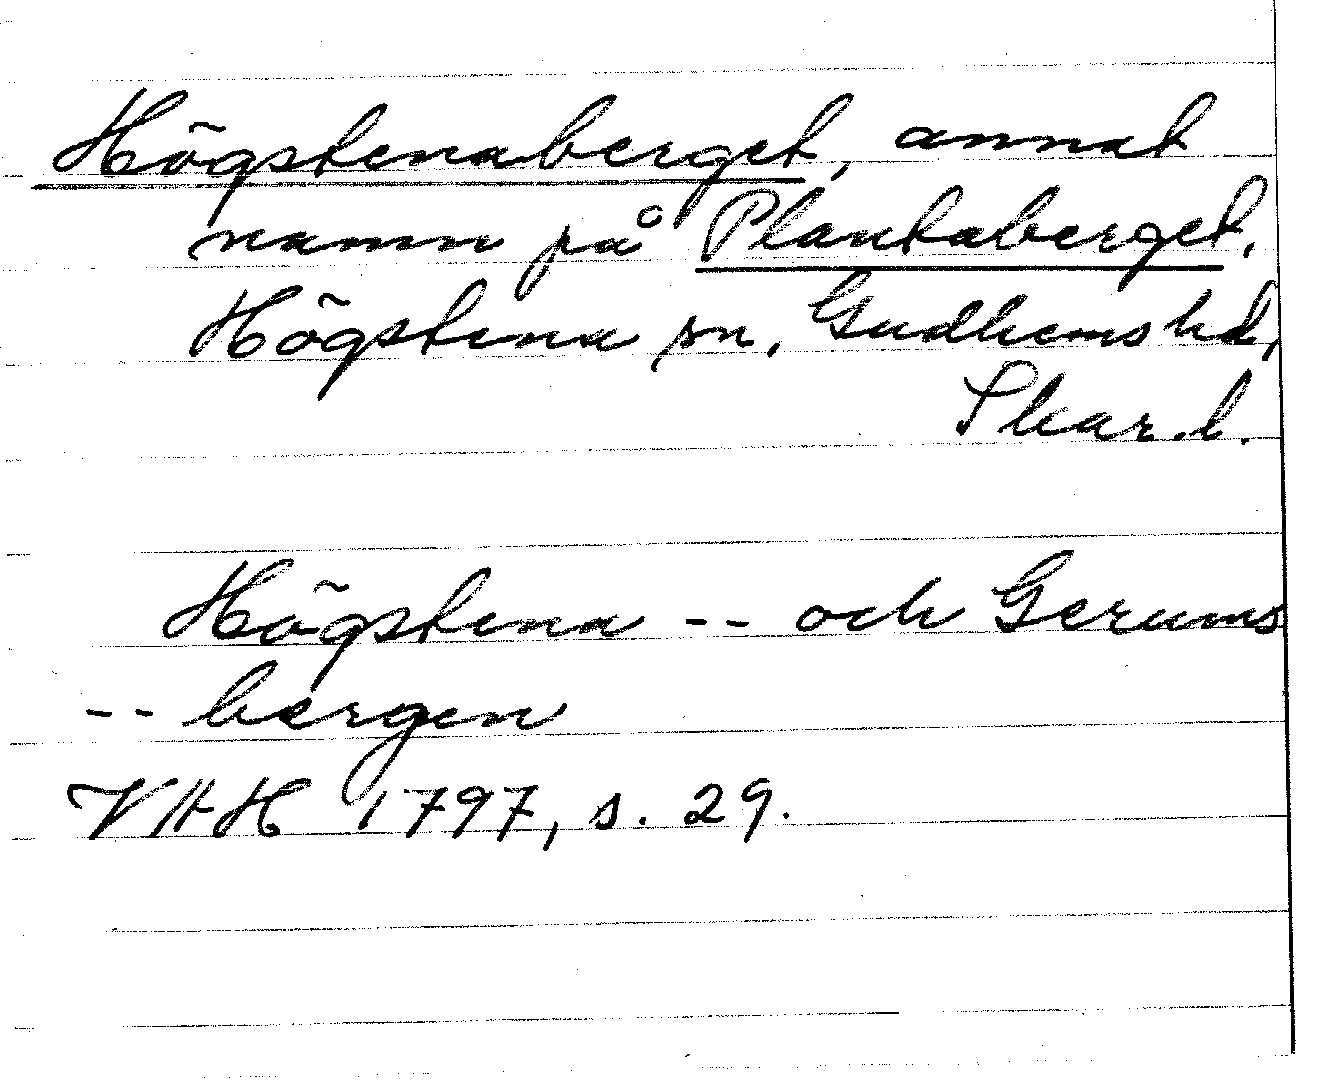 Högstenaberget, annat
namn på Plantaberget,
Högstena sn, Gudhems hd,
Skar. l.
Högstena -- och Gerums
-- bergen
VAH 1797, s. 29.